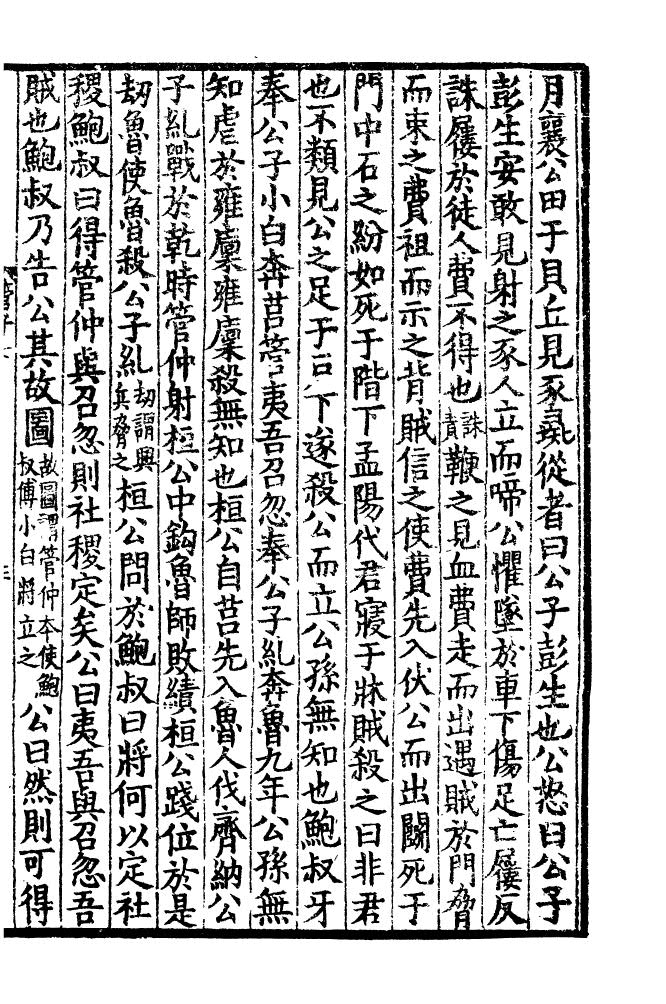 月襄公田于貝丘見豕彘從者曰公子彭生也公怒曰公子
彭生安敢見射之豕人立而啼公懼墜於車下傷足亡屨反
誅屨於徒人費不得也誅責鞭之見血費走而出遇賊於門脅
而束之費袒而示之背賊信之使費先入伏公而出鬬死于
門中石之紛如死于階下孟陽代君寢于牀賊殺之曰非君
也不類見公之足于戶下遂殺公而立公孫無知也鮑叔牙
奉公子小白奔莒管夷吾召忽奉公子糺奔魯九年公孫無
知虐於雍廩雍廩殺無知也桓公自莒先入魯人伐齊納公
子糺戰於乾時管仲射桓公中鈎魯師敗績桓公踐位於是
刼魯使魯殺公子糺刼謂興兵脅之桓公問於鮑叔曰將何以定社
稷鮑叔曰得管仲與召忽則社稷定矣公曰夷吾與召忽吾
賊也鮑叔乃告公其故圖故圖謂管仲本使鮑叔傅小白將立之公曰然則可得
管子